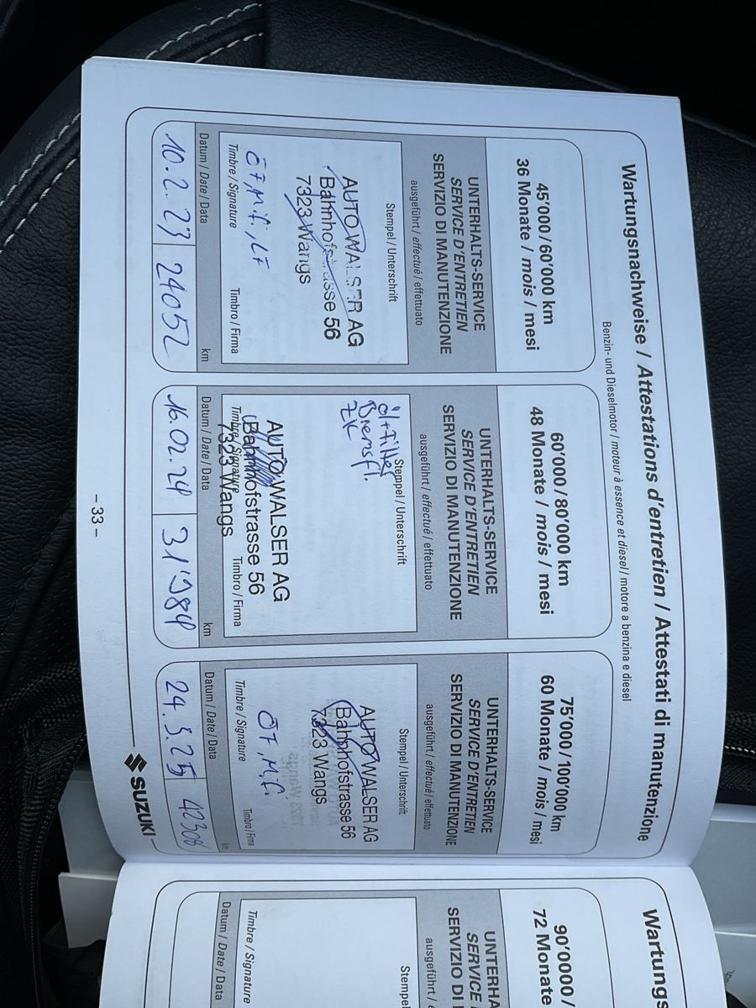 Wartungsnachweise / Attestations d'entretien / Attestati di manutenzione
Benzin- und Dieselmotor / moteur à essence et diesel / motore a benzina e diesel
45'000 / 60'000 km
36 Monate / mois / mesi
UNTERHALTS-SERVICE
SERVICE D'ENTRETIEN
SERVIZIO DI MANUTENZIONE
ausgeführt / effectué / effettuato
Stempel / Unterschrift
AUTO WALSER AG
Bahnhofstrasse 56
7323 Wangs
ÖF, M.F., LF
Timbre / Signature
Timbro / Firma
Datum / Date / Data
km
10.2.23
24052
60'000 / 80'000 km
48 Monate / mois / mesi
UNTERHALTS-SERVICE
SERVICE D'ENTRETIEN
SERVIZIO DI MANUTENZIONE
ausgeführt / effectué / effettuato
Stempel / Unterschrift
öl+Filter
Bremsfl.
ZK
AUTO WALSER AG
Bahnhofstrasse 56
7323 Wangs
Timbre / Signature
Timbro / Firma
Datum / Date / Data
km
16.02.24
31'984
75'000 / 100'000 km
60 Monate / mois / mesi
UNTERHALTS-SERVICE
SERVICE D'ENTRETIEN
SERVIZIO DI MANUTENZIONE
ausgeführt / effectué / effettuato
Stempel / Unterschrift
AUTO WALSER AG
Bahnhofstrasse 56
7323 Wangs
ÖF, M.F.
Timbre / Signature
Timbro / Firma
Datum / Date / Data
km
24.3.25
42308
- 33 -
SUZUKI
Wartungs
90'000 /
72 Monate
UNTERHA
SERVICE D
SERVIZIO DI
ausgeführt /
Stempe
Timbre / Signature
Datum / Date / Data